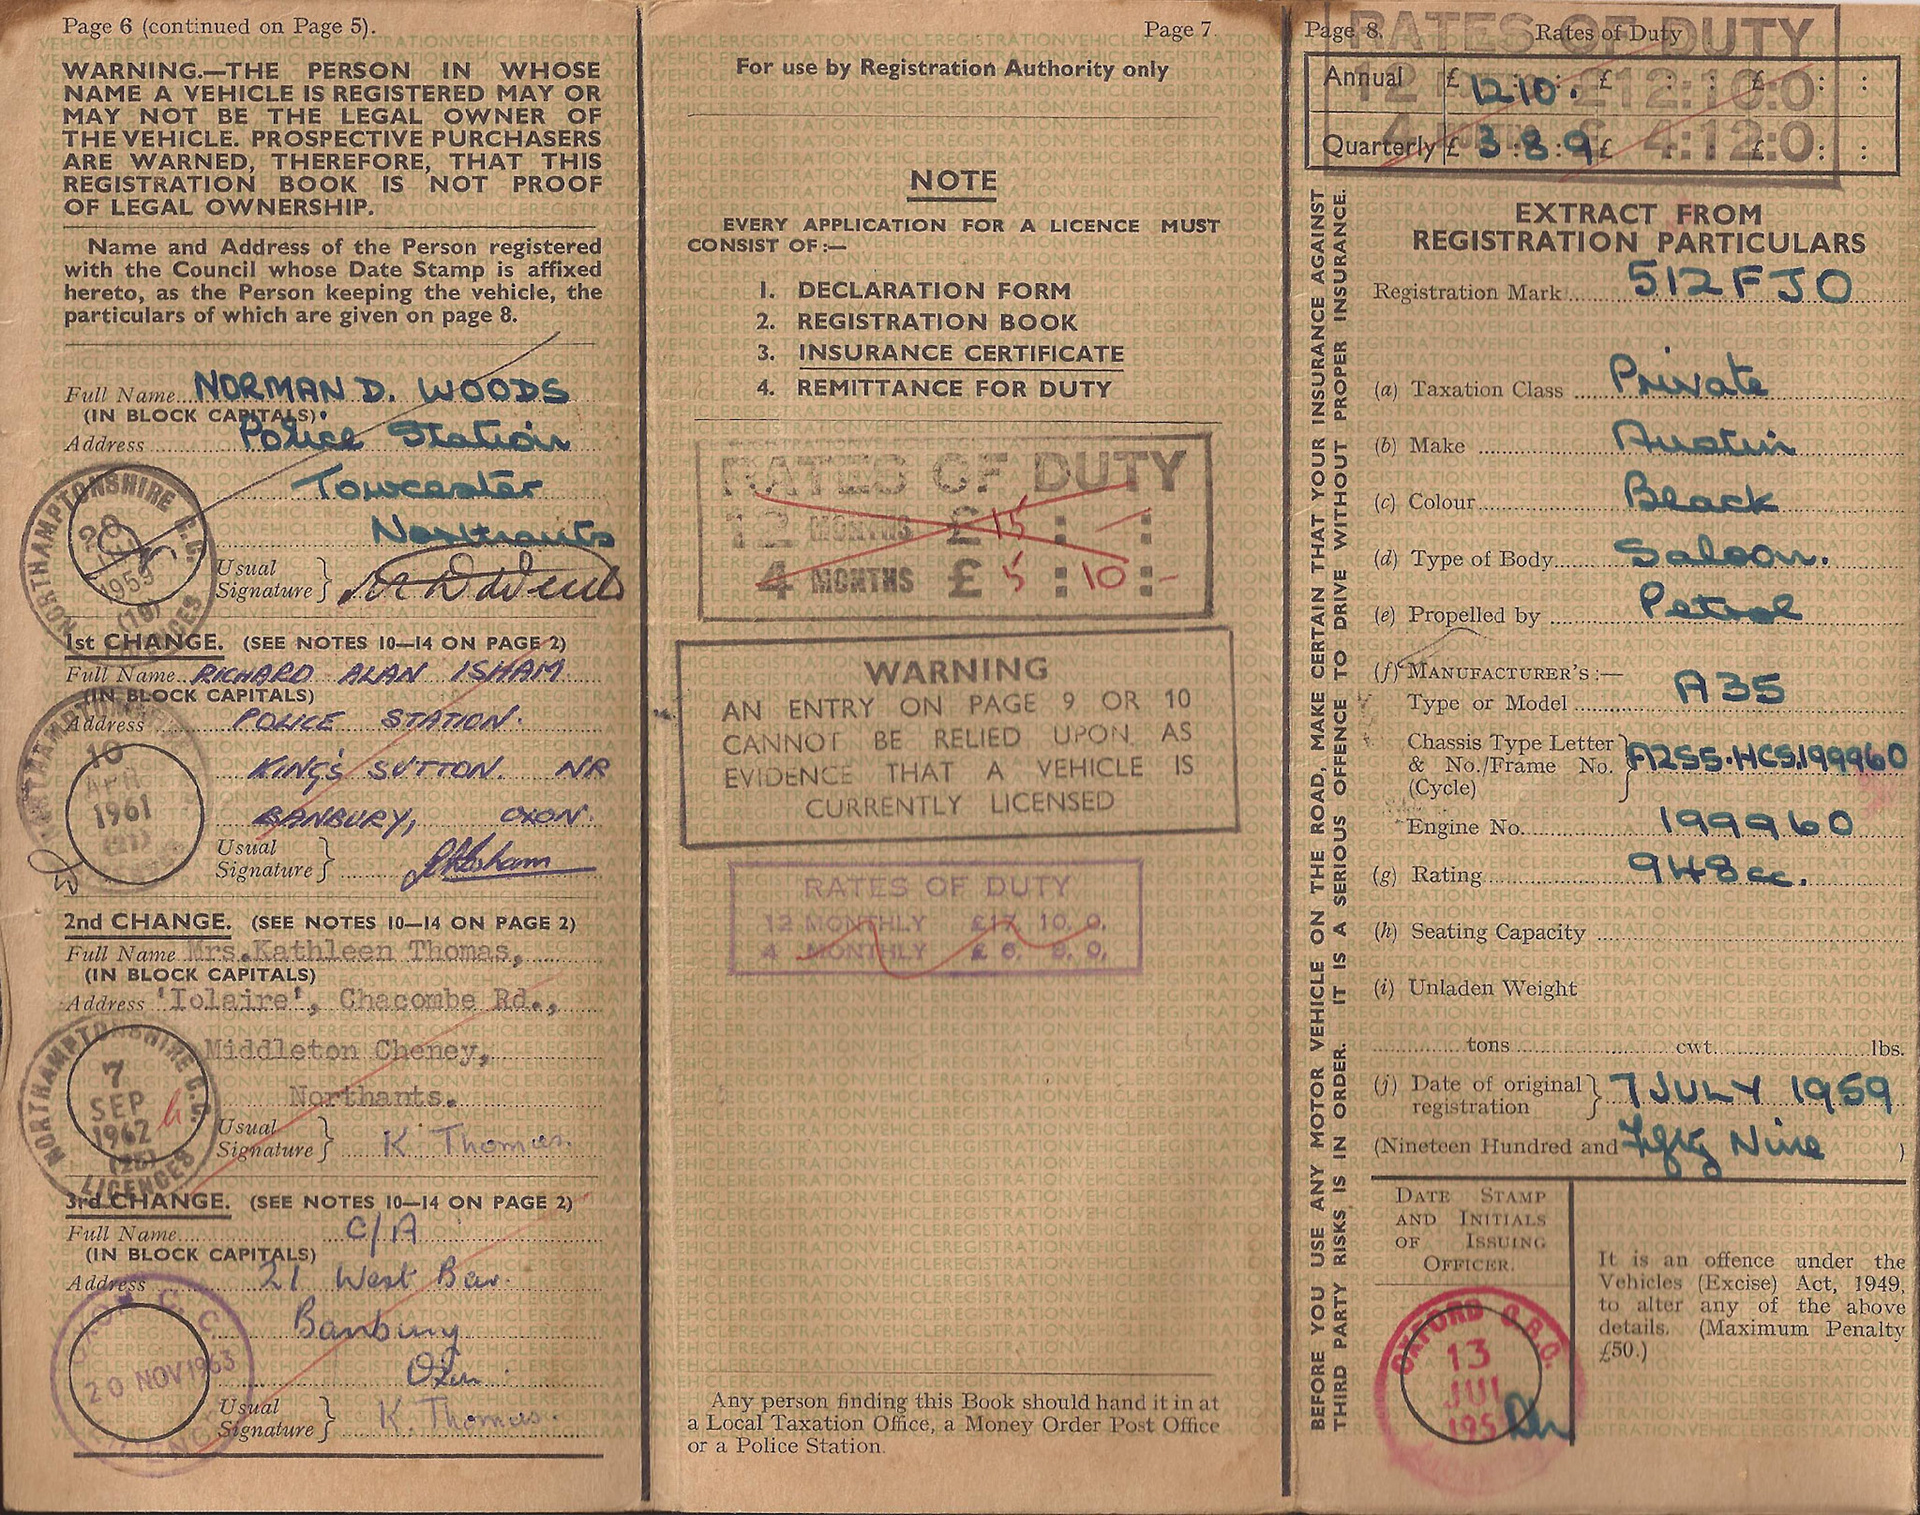 Page 6 (continued on Page 5).
WARNING.—THE PERSON IN WHOSE
NAME A VEHICLE IS REGISTERED MAY OR
MAY NOT BE THE LEGAL OWNER OF
THE VEHICLE. PROSPECTIVE PURCHASERS
ARE WARNED, THEREFORE, THAT THIS
REGISTRATION BOOK IS NOT PROOF
OF LEGAL OWNERSHIP.
Name and Address of the Person registered
with the Council whose Date Stamp is affixed
hereto, as the Person keeping the vehicle, the
particulars of which are given on page 8.
Full Name NORMAN D. WOODS
(IN BLOCK CAPITALS)
Address Police Station
Towcester
Northants
NORTHAMPTONSHIRE C.C.
20
1959
(19)
LICENCES
Usual
Signature }
1st CHANGE. (SEE NOTES 10—14 ON PAGE 2)
Full Name RICHARD ALAN ISHAM
(IN BLOCK CAPITALS)
Address POLICE STATION.
KING'S SUTTON. NR
BANBURY, OXON.
10
APR
1961
(21)
Usual
Signature } RAIsham
2nd CHANGE. (SEE NOTES 10—14 ON PAGE 2)
Full Name Mrs.Kathleen Thomas,
(IN BLOCK CAPITALS)
Address 'Iolaire', Chacombe Rd.,
Middleton Cheney,
Northants.
NORTHAMPTONSHIRE C.C.
7
SEP
1962
(25)
LICENCES
Usual
Signature } K Thomas.
3rd CHANGE. (SEE NOTES 10—14 ON PAGE 2)
Full Name C/A
(IN BLOCK CAPITALS)
Address 21 West Bar.
Banbury
Oxon
OXON C.C.
20 NOV 1963
Usual
Signature } K Thomas.
Page 7.
For use by Registration Authority only
NOTE
EVERY APPLICATION FOR A LICENCE MUST
CONSIST OF:—
1. DECLARATION FORM
2. REGISTRATION BOOK
3. INSURANCE CERTIFICATE
4. REMITTANCE FOR DUTY
RATES OF DUTY
12 MONTHS £ 15 : — :
4 MONTHS £ 5 : 10 : -
WARNING
AN ENTRY ON PAGE 9 OR 10
CANNOT BE RELIED UPON AS
EVIDENCE THAT A VEHICLE IS
CURRENTLY LICENSED
RATES OF DUTY
12 MONTHLY £17. 10. 0.
4 MONTHLY £ 6. 8. 0.
Any person finding this Book should hand it in at
a Local Taxation Office, a Money Order Post Office
or a Police Station.
Page 8. Rates of Duty
RATES OF DUTY
12 MONTHS £12:10:0
4 MONTHS £ 4:12:0
Annual £ 12 10. £ : : £ : :
Quarterly £ 3 : 8 : 9 £ : : £ : :
BEFORE YOU USE ANY MOTOR VEHICLE ON THE ROAD, MAKE CERTAIN THAT YOUR INSURANCE AGAINST
THIRD PARTY RISKS IS IN ORDER. IT IS A SERIOUS OFFENCE TO DRIVE WITHOUT PROPER INSURANCE.
EXTRACT FROM
REGISTRATION PARTICULARS
Registration Mark 512 FJO
(a) Taxation Class Private
(b) Make Austin
(c) Colour Black
(d) Type of Body Saloon.
(e) Propelled by Petrol
(f) MANUFACTURER'S:—
Type or Model A35
Chassis Type Letter
& No./Frame No. } A2S5.HCS.199960
(Cycle)
Engine No. 199960
(g) Rating 948 cc.
(h) Seating Capacity
(i) Unladen Weight
tons cwt. lbs.
(j) Date of original
registration } 7 JULY 1959
(Nineteen Hundred and Fifty Nine )
DATE STAMP
AND INITIALS
OF ISSUING
OFFICER.
OXFORD C.B.C.
13
JUL
195
It is an offence under the
Vehicles (Excise) Act, 1949,
to alter any of the above
details. (Maximum Penalty
£50.)